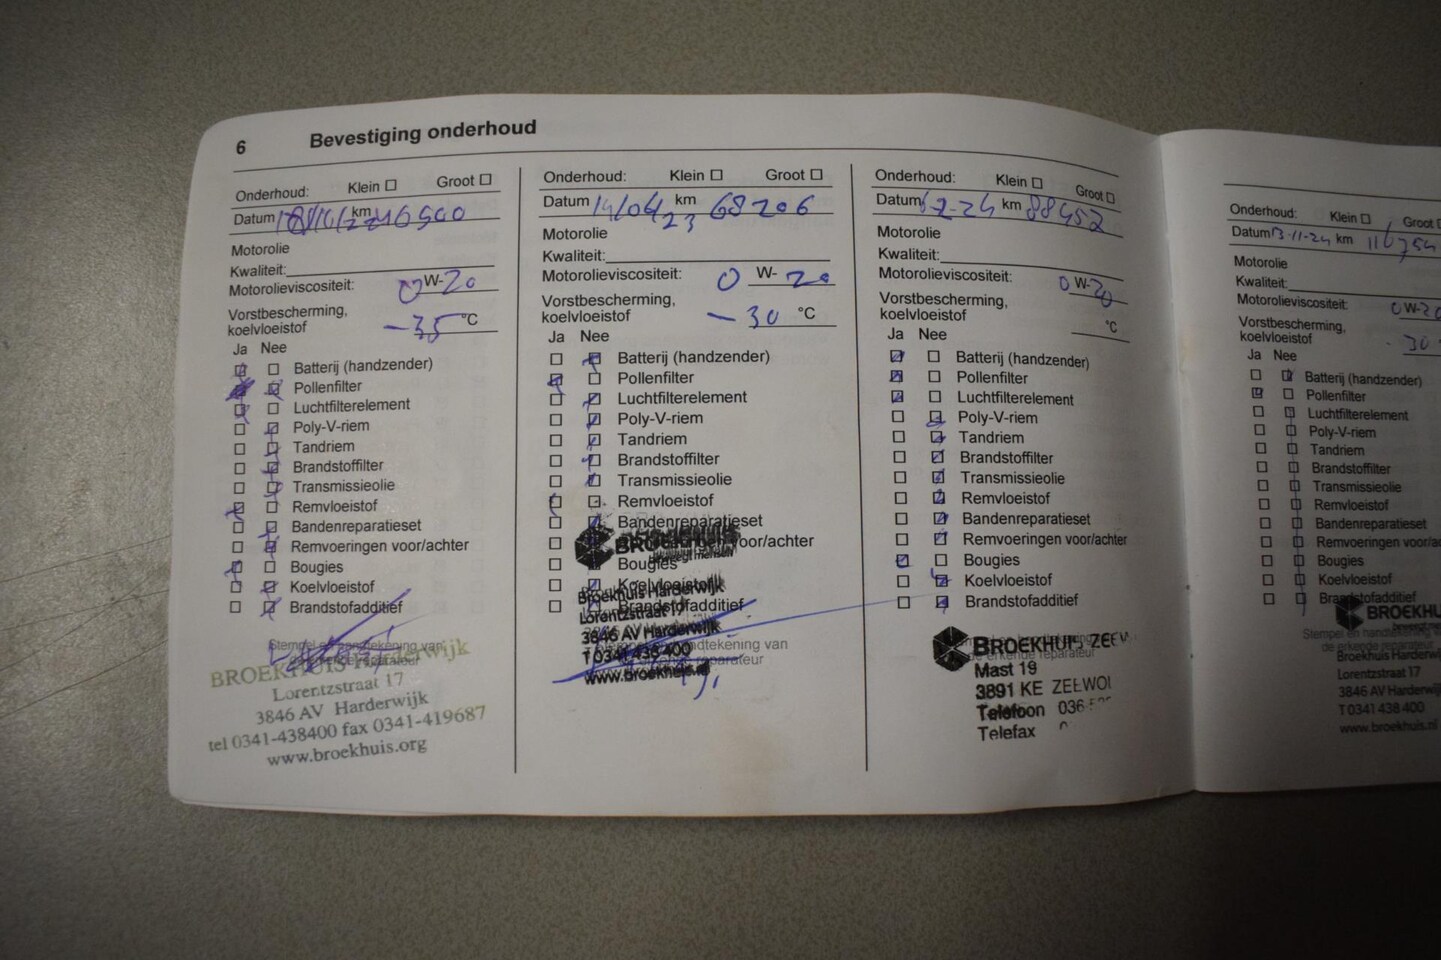 6 Bevestiging onderhoud
Onderhoud: Klein Groot
Datum km 46900
Motorolie
Kwaliteit:
Motorolieviscositeit: 0 W-20
Vorstbescherming,
koelvloeistof -35 °C
Ja Nee
Batterij (handzender)
Pollenfilter
Luchtfilterelement
Poly-V-riem
Tandriem
Brandstoffilter
Transmissieolie
Remvloeistof
Bandenreparatieset
Remvoeringen voor/achter
Bougies
Koelvloeistof
Brandstofadditief
Stempel en handtekening van
de erkende reparateur
BROEKHUIS Harderwijk
Lorentzstraat 17
3846 AV Harderwijk
tel 0341-438400 fax 0341-419687
www.broekhuis.org
Onderhoud: Klein Groot
Datum 14/04/23 km 68206
Motorolie
Kwaliteit:
Motorolieviscositeit: 0 W-20
Vorstbescherming,
koelvloeistof -30 °C
Ja Nee
Batterij (handzender)
Pollenfilter
Luchtfilterelement
Poly-V-riem
Tandriem
Brandstoffilter
Transmissieolie
Remvloeistof
Bandenreparatieset
voor/achter
BROEKHUIS
beweegt mensen
Bougies
Koelvloeistof
Brandstofadditief
Broekhuis Harderwijk
Lorentzstraat 17
3846 AV Harderwijk
handtekening van
reparateur
T 0341 438 400
www.broekhuis.nl
Onderhoud: Klein Groot
Datum 6-2-24 km 88452
Motorolie
Kwaliteit:
Motorolieviscositeit: 0 W-20
Vorstbescherming,
koelvloeistof °C
Ja Nee
Batterij (handzender)
Pollenfilter
Luchtfilterelement
Poly-V-riem
Tandriem
Brandstoffilter
Transmissieolie
Remvloeistof
Bandenreparatieset
Remvoeringen voor/achter
Bougies
Koelvloeistof
Brandstofadditief
Stempel en handtekening van
de erkende reparateur
BROEKHUIS ZEEW
Mast 19
3891 KE ZEEWOL
Telefoon 036
Telefax
Onderhoud: Klein Groot
Datum 13-11-24 km 116754
Motorolie
Kwaliteit:
Motorolieviscositeit: 0 W-20
Vorstbescherming,
koelvloeistof -30
Ja Nee
Batterij (handzender)
Pollenfilter
Luchtfilterelement
Poly-V-riem
Tandriem
Brandstoffilter
Transmissieolie
Remvloeistof
Bandenreparatieset
Remvoeringen voor/a
Bougies
Koelvloeistof
Brandstofadditief
BROEKHU
Stempel en handtekening
de erkende reparateur
Broekhuis Harderwi
Lorentzstraat 17
3846 AV Harderwijk
T 0341 438 400
www.broekhuis.nl